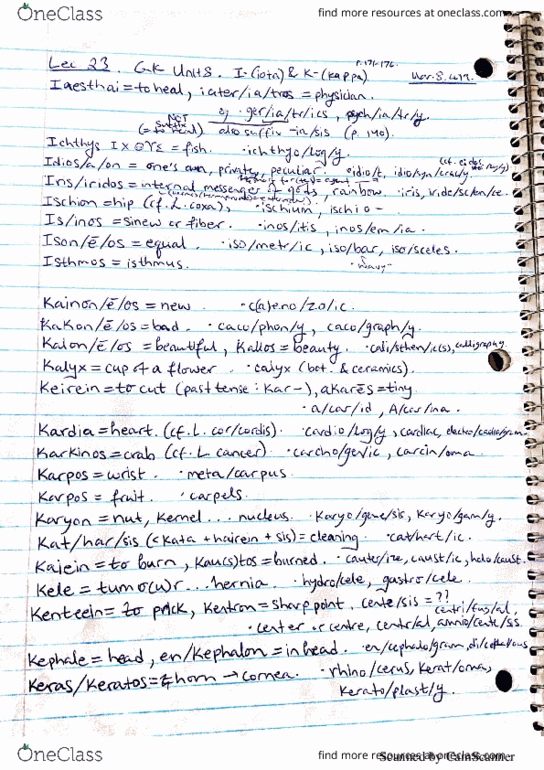 OneClass
find more resources at oneclass.com
Lec 23. GK Unit 8. I-(iota) & K-(kappa)
p.171-176.
Nov. 8,
Iaesthai = to heal, iater/ia/tros = physician.
ger/ia/tr/ics, psych/ia/tr/y.
NOT
suffix
(= to heal) also suffix -ia/sis (p. 140).
Ichthys ΙΧΘΥΣ = fish. · ichthyo/log/y.
Idios/a/on = one's own, private, peculiar. · idio/t, idio/syn/cra/cy.
Iris/iridos = internal messenger of gods, rainbow. · iris, iride/sc/en/ce.
Ischion = hip (cf. L. coxa), · ischium, ischio-
Is/inos = sinew or fiber. · inos/itis, inos/em/ia.
Ison/ē/os = equal. · iso/metr/ic, iso/bar, iso/sceles.
Isthmos = isthmus.
Kainon/ē/os = new
Kakon/ē/os = bad. · caco/phon/y, caco/graph/y.
Kalon/ē/os = beautiful, Kallos = beauty. · cali/sthen/ic(s), calligraphy.
Kalyx = cup of a flower. · calyx (bot. & ceramics).
Keirein = to cut (past tense: Kar-), akarēs = tiny.
· a/car/id, A/car/ina.
Kardia = heart. (cf. L. cor/cordis). · cardio/log/y, cardiac, electro/cardio/gram.
Karkinos = crab (cf. L cancer). · carcino/gen/ic, carcin/oma.
Karpos = wrist. · meta/carpus.
Karpos = fruit. · carpels.
Karyon = nut, kernel... nucleus. · Karyo/gene/sis, Karyo/gam/y.
Kat/har/sis (< Kata + hairein + sis) = cleaning. · cat/hart/ic.
Kaiein = to burn, Kau(s)tos = burned. · caute/ize, caust/ic, holo/caust.
Kele = tumo(u)r... hernia. · hydro/cele, gastro/cele.
Kenteein = to prick, Kentron = sharp point, cente/sis = ??
centri/fug/al,
· center or centre, centr/al, amnio/cente/sis.
Kephale = head, en/Kephalon = in head. · en/cephalo/gram,
Keras/Keratos = horn → cornea. · rhino/cerus, Kerat/oma,
Kerato/plast/y.
OneClass
find more resources at oneclass.com
Scanned by CamScanner